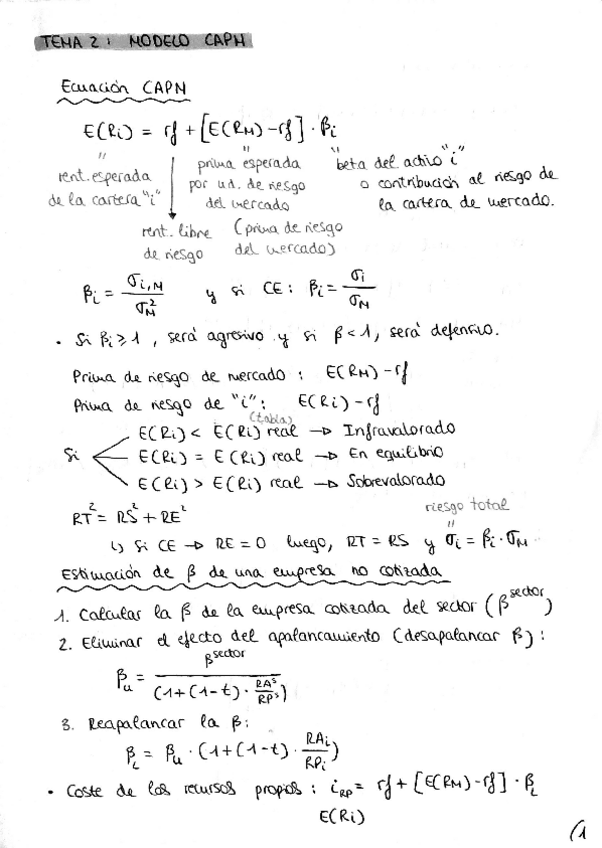 TEMA 2: MODELO CAPM
Ecuación CAPM
E(Ri) = rf + [E(RM) - rf] · βi
" " "
rent. esperada de la cartera "i"
rent. libre de riesgo
prima esperada por ud. de riesgo del mercado (prima de riesgo del mercado)
beta del activo "i" o contribución al riesgo de la cartera de mercado.
βi = σi,M / σM² y si CE: βi = σi / σM
· Si βi ≥ 1, será agresivo y si β < 1, será defensivo.
Prima de riesgo de mercado: E(RM) - rf
Prima de riesgo de "i": E(Ri) - rf
(tabla)
Si E(Ri) < E(Ri) real → Infravalorado
E(Ri) = E(Ri) real → En equilibrio
E(Ri) > E(Ri) real → Sobrevalorado
riesgo total
"
RT² = RS² + RE²
↳ Si CE → RE = 0 luego, RT = RS y σi = βi · σM
Estimación de β de una empresa no cotizada
1. Calcular la β de la empresa cotizada del sector (β sector)
2. Eliminar el efecto del apalancamiento (desapalancar β):
βu = β sector / (1 + (1-t) · RAs / RPs)
3. Reapalancar la β:
βL = βu · (1 + (1-t) · RAi / RPi)
· Coste de los recursos propios: iRP = rf + [E(RM) - rf] · βL
E(Ri)
(1